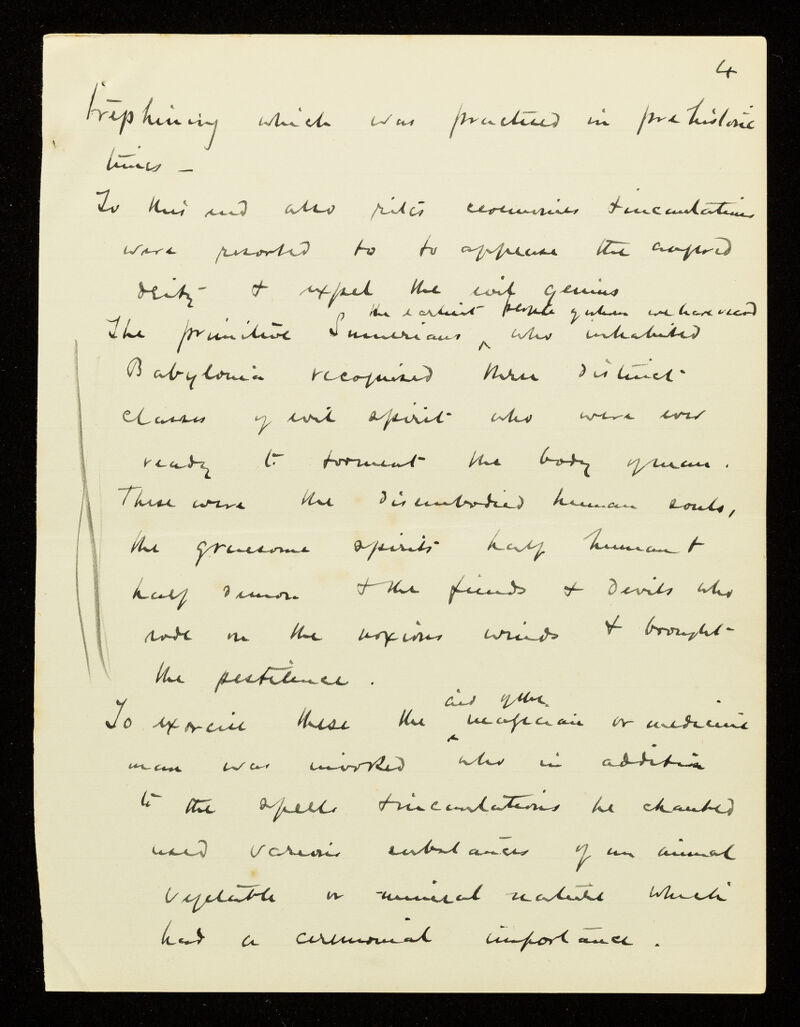 4
trephining which was practised in prehistoric
times –
To this end also rites ceremonies & incantations
were resorted to to appease the angered
deity & expel the evil genius
the earliest people of whom we have record
The primitive Sumerians ^ who inhabited
Babylonia recognised three distinct
classes of evil spirit who were ever
ready to torment the body of man.
These were the disembodied human souls,
the gruesome spirits half human &
half demon & the fiends & devils who
rode on the noxious winds & brought
the pestilence.
aid of the
To exorcise these the ^ magician or medicine
man was invoked who in addition
to the spells & incantations he chanted
used various substances of an animal
vegetable or mineral nature which
had a ceremonial importance.